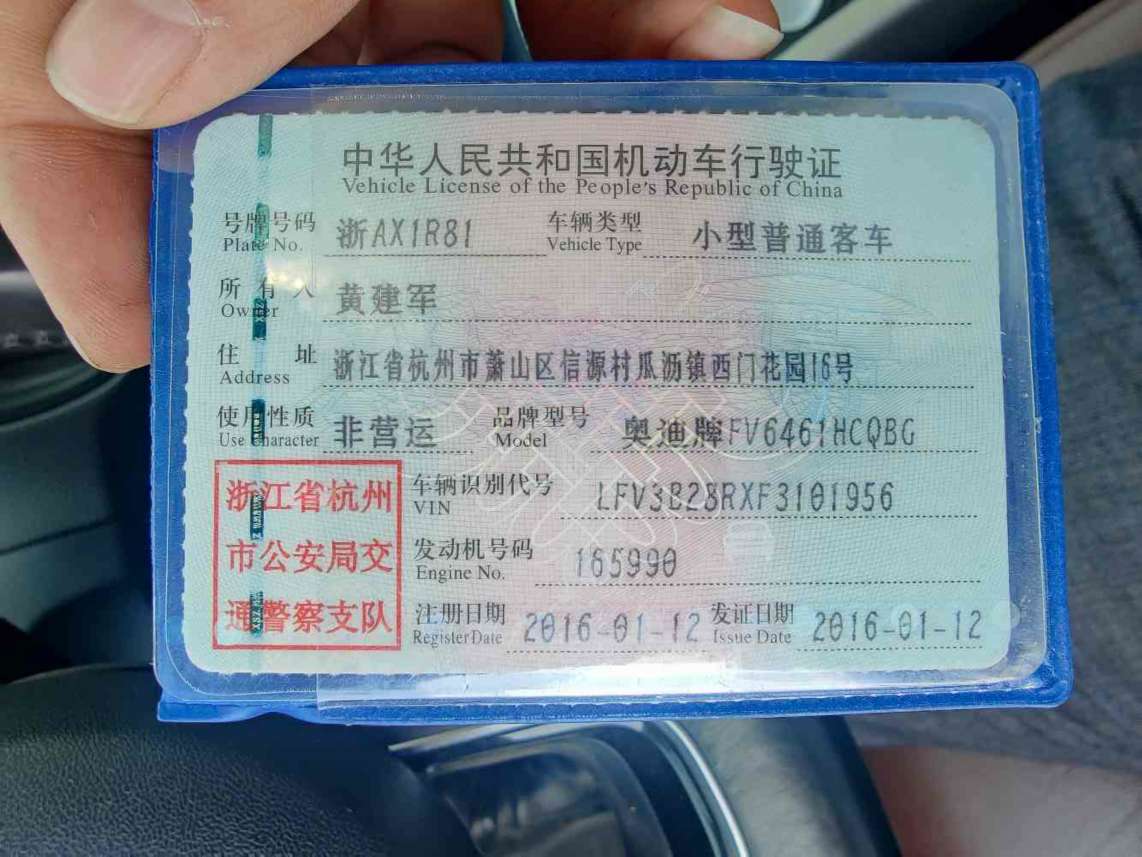 中华人民共和国机动车行驶证
Vehicle License of the People's Republic of China
号牌号码 浙AX1R81 车辆类型 小型普通客车
Plate No. Vehicle Type
所有人 黄建军
Owner
住址 浙江省杭州市萧山区信源村瓜沥镇西门花园16号
Address
使用性质 非营运 品牌型号 奥迪牌FV6461HCQBG
Use Character Model
浙江省杭州
市公安局交
通警察支队
车辆识别代号 LFV3B28RXF3101956
VIN
发动机号码 165990
Engine No.
注册日期 2016-01-12 发证日期 2016-01-12
Register Date Issue Date